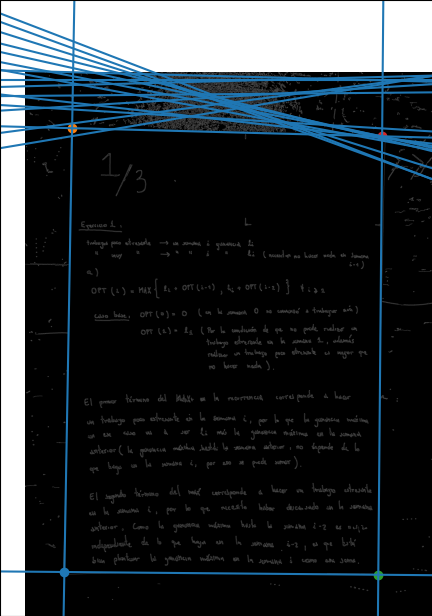 1/3
Ejercicio 1.
trabajo poco estresante → en semana i ganancia li
" muy " → " " i " hi ( no hacer nada en semana i-1)
a)
OPT (i) = MAX { li + OPT (i-1) , hi + OPT (i-2) } i ≥ 2
Caso base: OPT (0) = 0 ( en la semana 0 no comenzó a trabajar aún)
OPT (1) = ( Por la condición de que no puede realizar un
trabajo estresante en la semana 1, además
realizar un trabajo poco estresante es mejor que
no hacer nada ).
El primer término del MAX en la recurrencia corresponde a hacer
un trabajo poco estresante en la semana i, por lo que la ganancia máxima
en ese caso va a ser li más la ganancia máxima en la semana
anterior ( la ganancia máxima hasta la semana anterior, no depende de lo
que haga en la semana i, por eso se puede sumar ).
El segundo término del max corresponde a hacer un trabajo estresante
en la semana i, por lo que necesito haber descansado en la semana
anterior. Como la ganancia máxima hasta la semana i-2 es
independiente de lo que haga en la semana i-1, es que está
bien plantear la ganancia máxima en la semana i como esa suma.